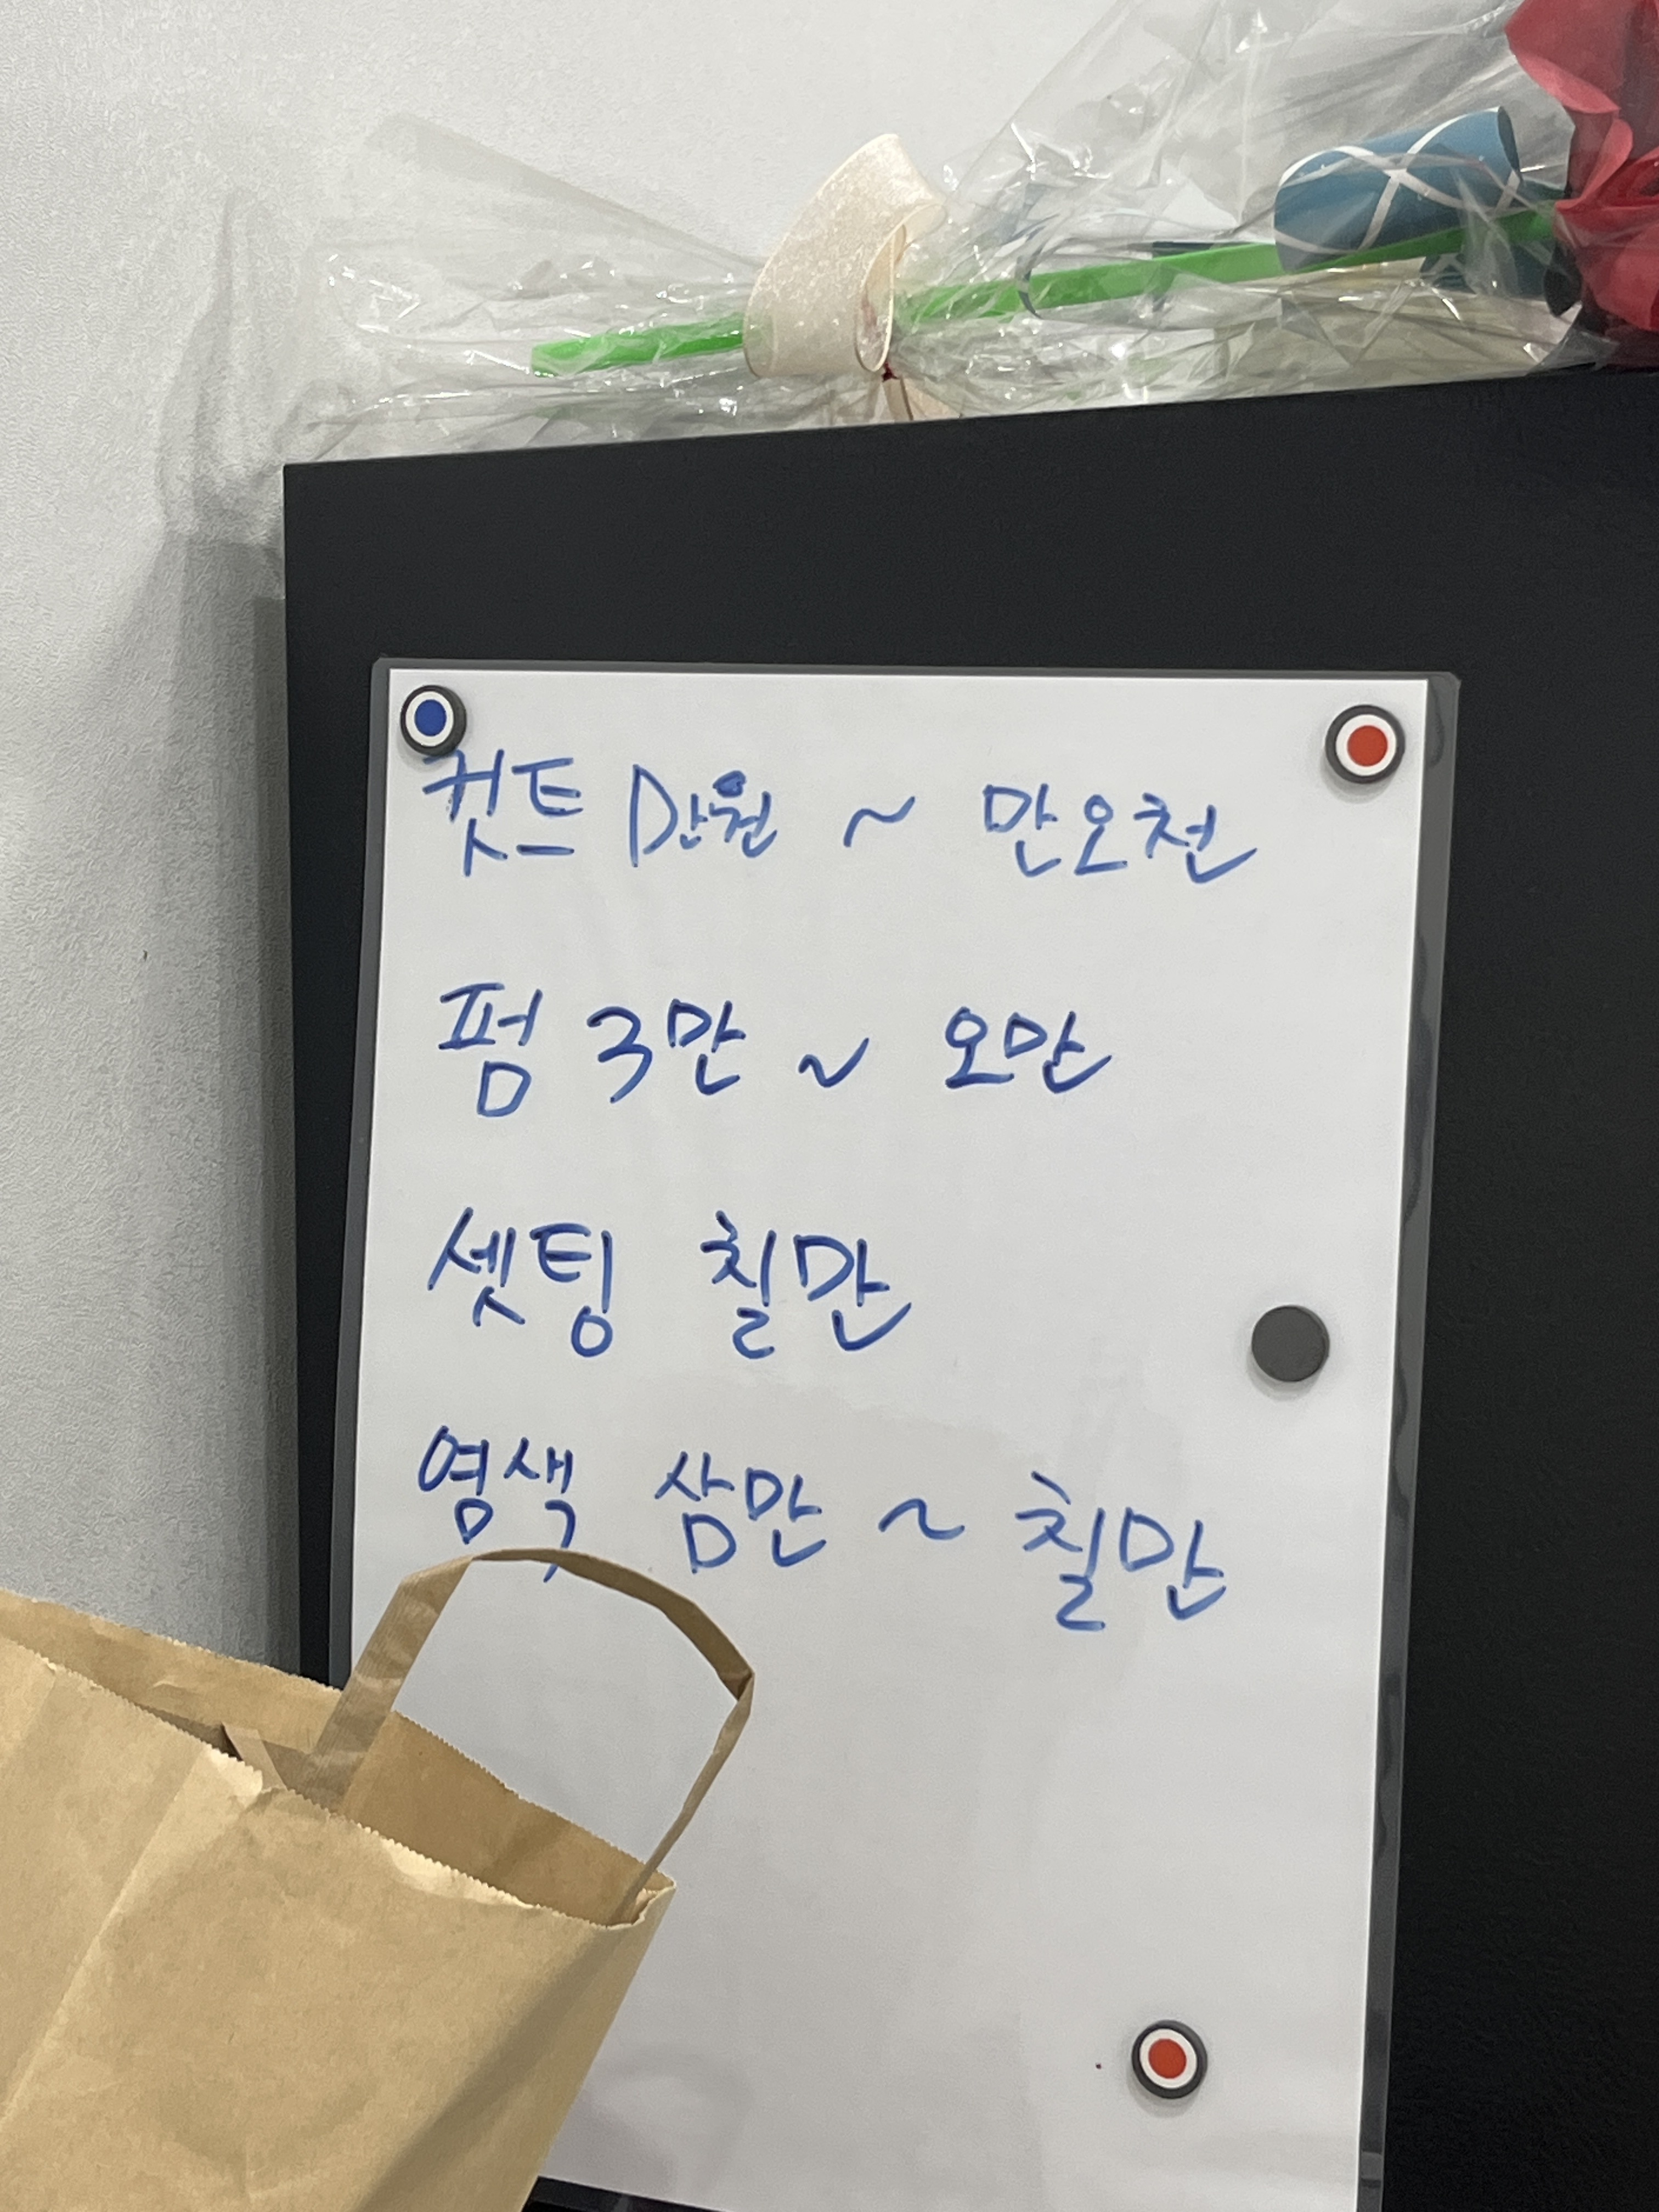 컷트 만원 ~ 만오천
펌 3만 ~ 오만
셋팅 칠만
염색 삼만 ~ 칠만